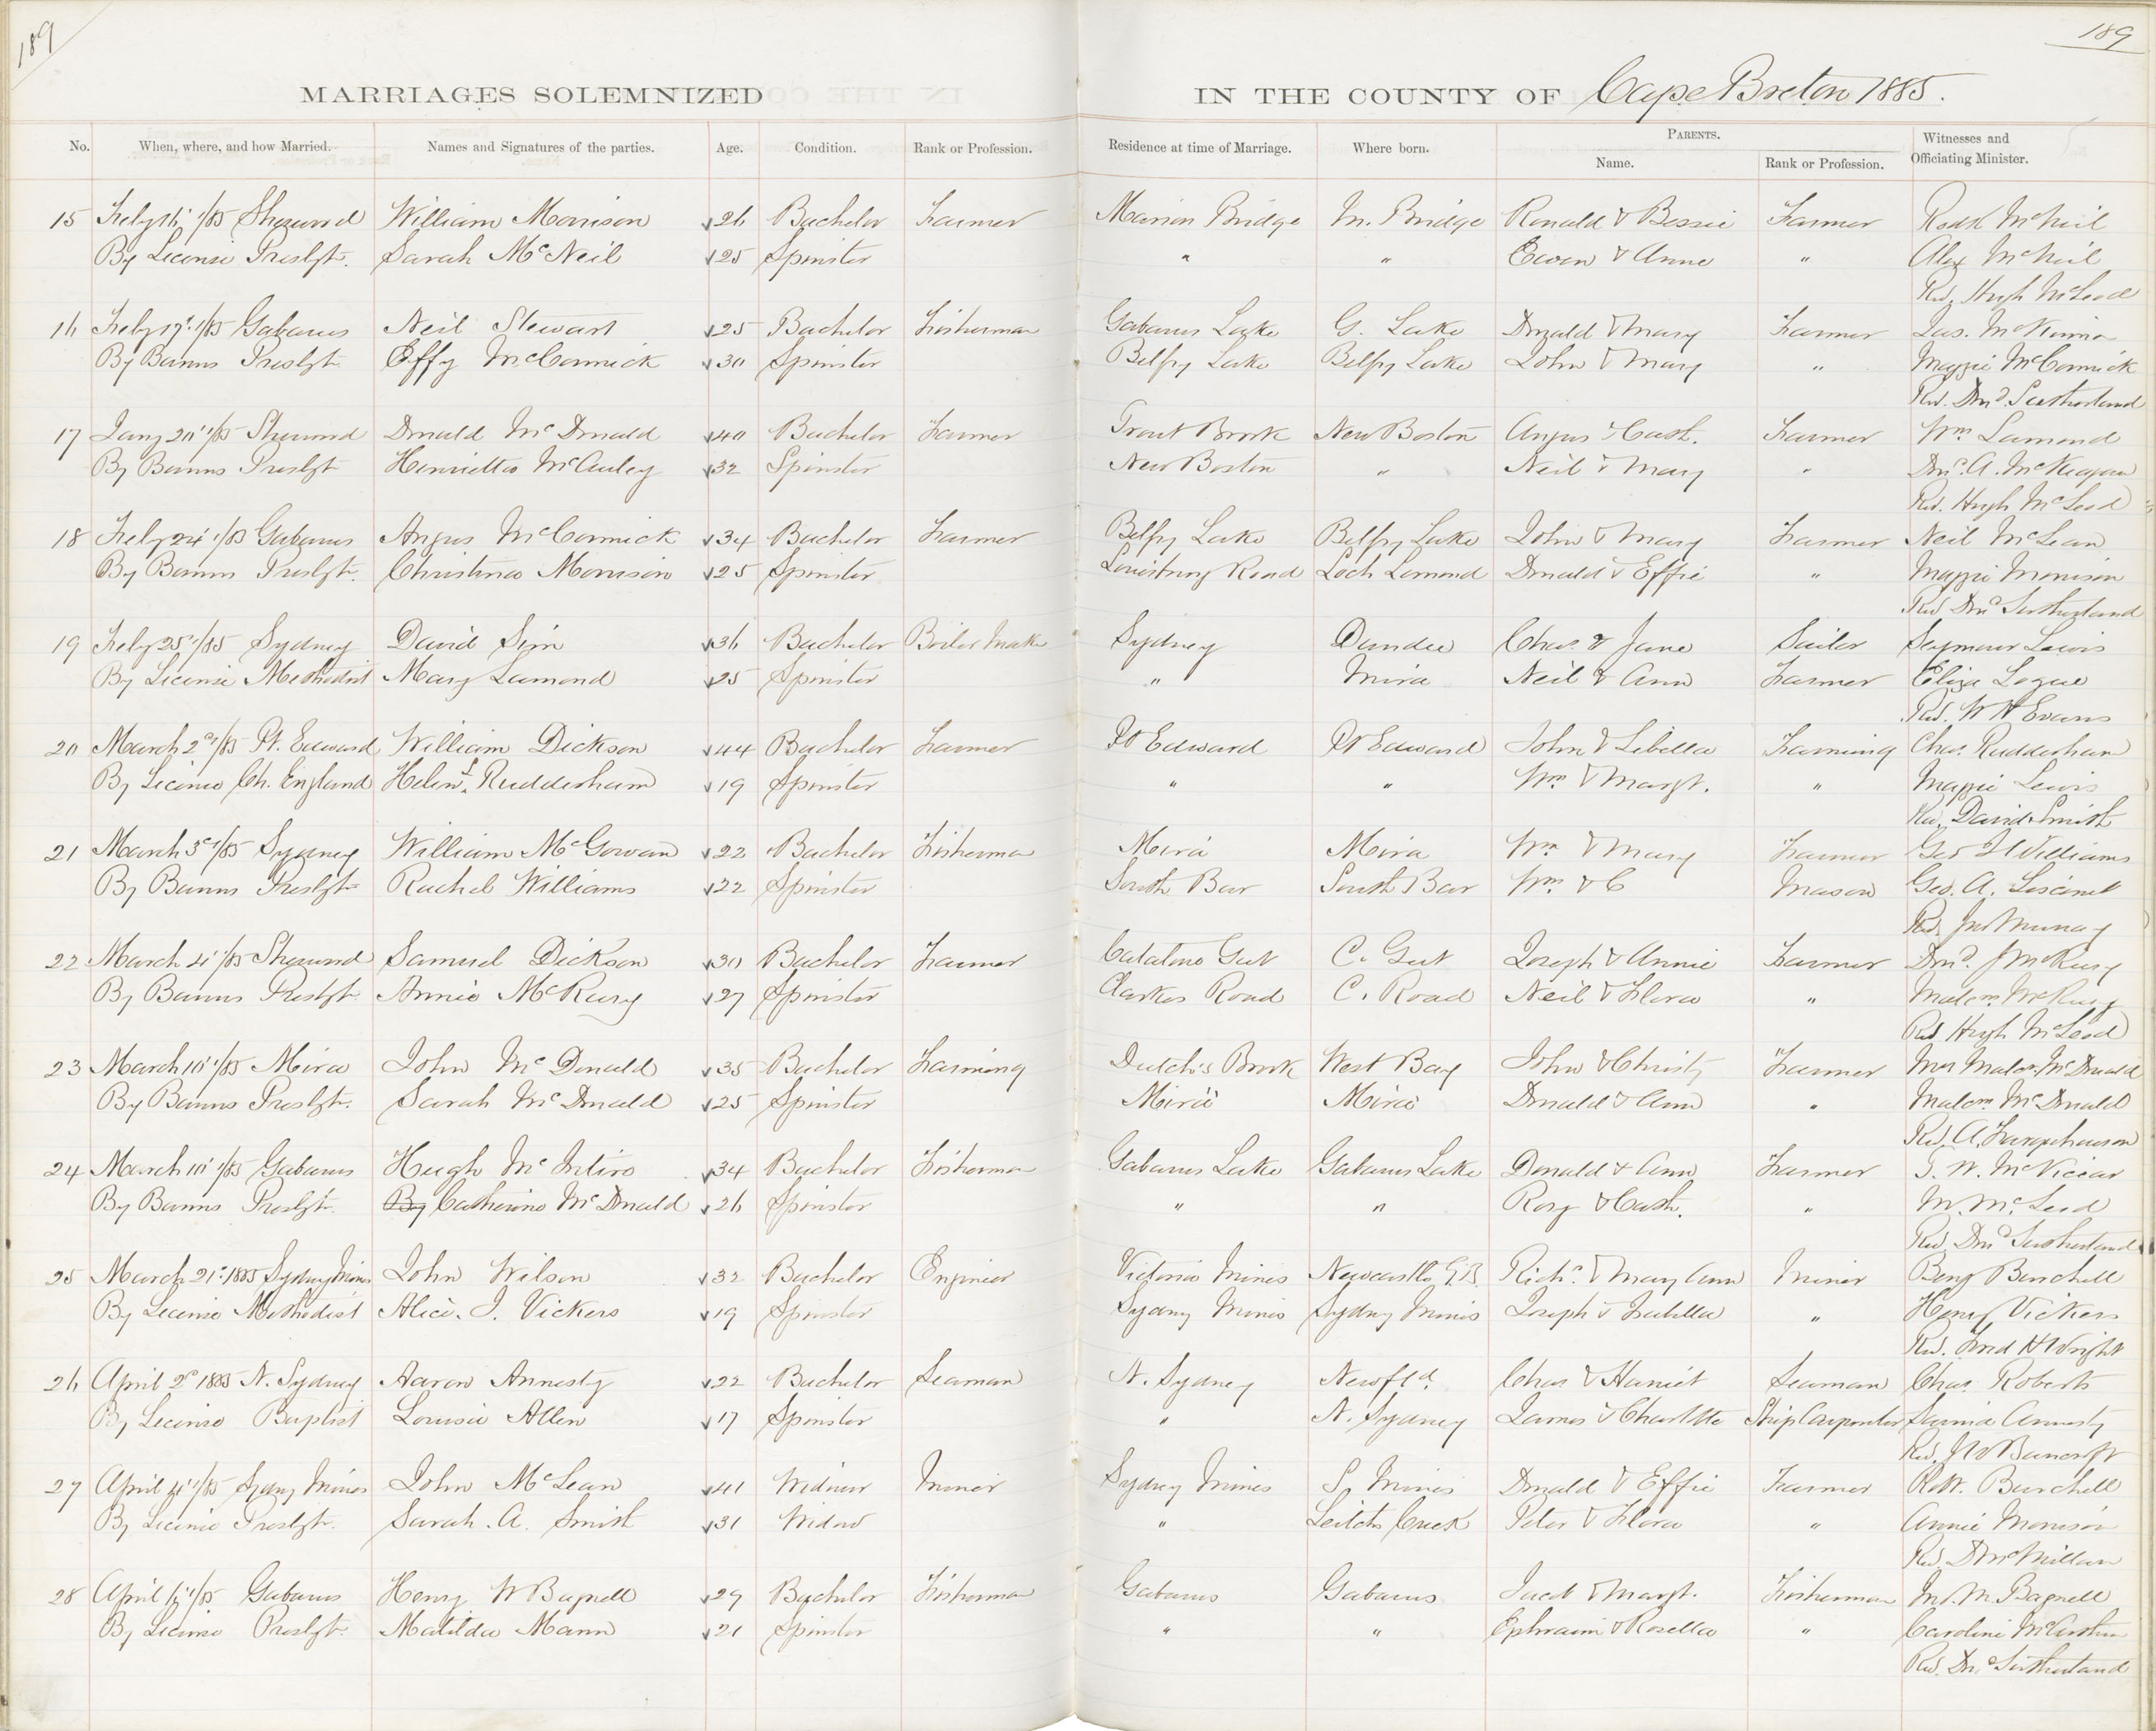 189
189
MARRIAGES SOLEMNIZED IN THE COUNTY OF Cape Breton 1885.
No. When, where, and how Married. Names and Signatures of the parties. Age. Condition. Rank or Profession. Residence at time of Marriage. Where born. PARENTS. Name. Rank or Profession. Witnesses and Officiating Minister.
15 Feby 16 /85 Sherwood William Morrison 26 Bachelor Farmer Marion Bridge M. Bridge Ronald & Bessie Farmer Rodk McNeil
By License Presbyt. Sarah McNeil 25 Spinster " " Ewen & Anne " Alex McNeil
Rev. Hugh McLeod
16 Feby 17 /85 Gabarus Neil Stewart 25 Bachelor Fisherman Gabarus Lake G. Lake Donald & Mary Farmer Jas. McKinnon
By Banns Presbyt. Effy McCormick 30 Spinster Belfry Lake Belfry Lake John & Mary " Maggie McCormick
Rev. Dnd. Sutherland
17 Jany 20 /85 Sherwood Donald McDonald 40 Bachelor Farmer Trout Brook New Boston Angus & Cath. Farmer Wm Lamond
By Banns Presbyt Henrietta McAuley 32 Spinster New Boston " Neil & Mary " Dnd. A. McKeagan
Rev. Hugh McLeod
18 Feby 24 /85 Gabarus Angus McCormick 34 Bachelor Farmer Belfry Lake Belfry Lake John & Mary Farmer Neil McLean
By Banns Presbyt. Christina Morrison 25 Spinster Louisburg Road Loch Lomond Donald & Effie " Maggie Morrison
Rev Dnd Sutherland
19 Feby 25 /85 Sydney David Sim 36 Bachelor Boiler Maker Sydney Dundee Chas. & Jane Sailor Seymour Lewis
By License Methodist Mary Lamond 25 Spinster " Mira Neil & Ann Farmer Eliza Logue
Rev. W H Evans
20 March 2nd /85 Pt. Edward William Dickson 44 Bachelor Farmer Pt Edward Pt Edward John & Libella Farming Chas. Rudderham
By License Ch. England Helen S. Rudderham 19 Spinster " " Wm & Margt. " Maggie Lewis
Rev. David Smith
21 March 3rd /85 Sydney William McGowan 22 Bachelor Fisherman Mira Mira Wm & Mary Farmer Geo H Williams
By Banns Presbyt Rachel Williams 22 Spinster South Bar South Bar Wm & C Mason Geo. A.
Rev. Jno Murray
22 March 4 /85 Sherwood Samuel Dickson 30 Bachelor Farmer Catalone Gut C. Gut Joseph & Annie Farmer Dnd. J McRury
By Banns Presbyt. Annie McRury 27 Spinster Clarkes Road C. Road Neil & Flora " Malcm. McRury
Rev Hugh McLeod
23 March 10 /85 Mira John McDonald 35 Bachelor Farming Dutch's Brook West Bay John & Christy Farmer Mrs Malcm. McDonald
By Banns Presbyt. Sarah McDonald 25 Spinster Mira Mira Donald & Ann " Malcm. McDonald
Rev. A. Farquharson
24 March 10 /85 Gabarus Hugh McIntire 34 Bachelor Fisherman Gabarus Lake Gabarus Lake Donald & Ann Farmer S. W. McVicar
By Banns Presbyt. By Catherine McDonald 26 Spinster " " Rory & Cath. " M. McLeod
Rev Dnd Sutherland
25 March 21st 1885 Sydney Mines John Wilson 32 Bachelor Engineer Victoria Mines Newcastle G.B. Richd. & Mary Ann Miner Benj Burchell
By License Methodist Alice. J. Vickers 19 Spinster Sydney Mines Sydney Mines Joseph & Isabella " Henry Vickers
Rev. Fred H Wright
26 April 2nd 1885 N. Sydney Aaron Annesty 22 Bachelor Seaman N. Sydney Newfld. Chas & Harriet Seaman Chas Roberts
By License Baptist Louisie Allen 17 Spinster " N. Sydney James & Charlotte Ship Carpenter Annesty
Rev. J W Bancroft
27 April 4 /85 Sydney Mines John McLean 41 Widower Miner Sydney Mines S. Mines Donald & Effie Farmer R W. Burchell
By License Presbyt. Sarah. A. Smith 31 Widow " Leitchs Creek Peter & Flora " Annie Morrison
Rev. D McMillan
28 April 6 /85 Gabarus Henry W Bagnell 29 Bachelor Fisherman Gabarus Gabarus Jacob & Margt. Fisherman M. M. Bagnell
By License Presbyt. Matilda Mann 21 Spinster " " Ephraim & Rosella " Caroline McArthur
Rev. Dnd Sutherland